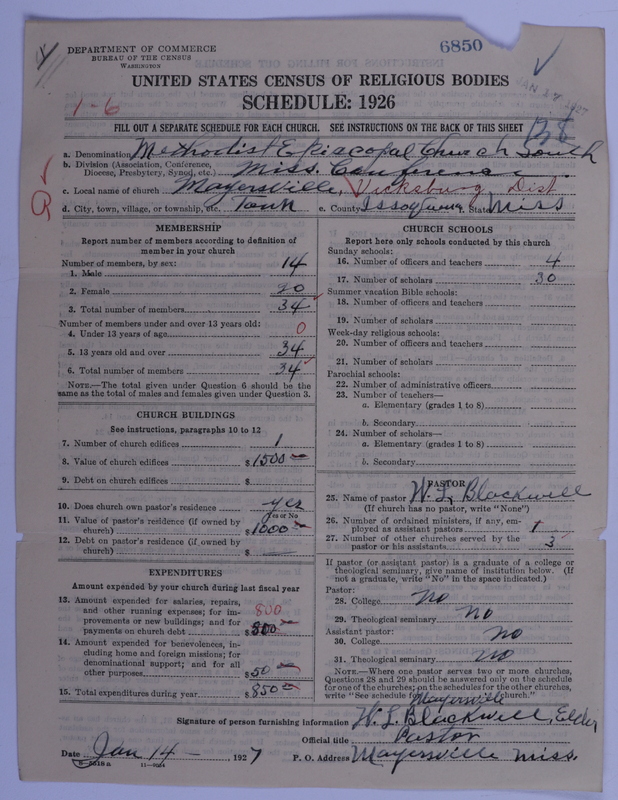 DEPARTMENT OF COMMERCE
BUREAU OF THE CENSUS
WASHINGTON
6850
JAN 17 1927
UNITED STATES CENSUS OF RELIGIOUS BODIES
SCHEDULE: 1926
1-6
FILL OUT A SEPARATE SCHEDULE FOR EACH CHURCH. SEE INSTRUCTIONS ON THE BACK OF THIS SHEET
a. Denomination Methodist Episcopal Church South
b. Division (Association, Conference, Diocese, Presbytery, Synod, etc.) Miss. Conference
c. Local name of church Mayersville, Vicksburg Dist
d. City, town, village, or township, etc. Town e. County Issaquena f. State Miss
MEMBERSHIP
Report number of members according to definition of member in your church
Number of members, by sex:
1. Male 14
2. Female 20
3. Total number of members 34
Number of members under and over 13 years old:
4. Under 13 years of age 0
5. 13 years old and over 34
6. Total number of members 34
NOTE.—The total given under Question 6 should be the same as the total of males and females given under Question 3.
CHURCH BUILDINGS
See instructions, paragraphs 10 to 12
7. Number of church edifices 1
8. Value of church edifices $1500
9. Debt on church edifices $
10. Does church own pastor's residence yes
Yes or No
11. Value of pastor's residence (if owned by church) $1000
12. Debt on pastor's residence (if owned by church) $
EXPENDITURES
Amount expended by your church during last fiscal year
13. Amount expended for salaries, repairs, and other running expenses; for improvements or new buildings; and for payments on church debt $800 800
14. Amount expended for benevolences, including home and foreign missions; for denominational support; and for all other purposes $50
15. Total expenditures during year $850
CHURCH SCHOOLS
Report here only schools conducted by this church
Sunday schools:
16. Number of officers and teachers 4
17. Number of scholars 30
Summer vacation Bible schools:
18. Number of officers and teachers
19. Number of scholars
Week-day religious schools:
20. Number of officers and teachers
21. Number of scholars
Parochial schools:
22. Number of administrative officers
23. Number of teachers—
a. Elementary (grades 1 to 8)
b. Secondary
24. Number of scholars—
a. Elementary (grades 1 to 8)
b. Secondary
PASTOR
25. Name of pastor W. L. Blackwell
(If church has no pastor, write "None")
26. Number of ordained ministers, if any, employed as assistant pastors 1
27. Number of other churches served by the pastor or his assistants 3
If pastor (or assistant pastor) is a graduate of a college or theological seminary, give name of institution below. (If not a graduate, write "No" in the space indicated.)
Pastor:
28. College No
29. Theological seminary No
Assistant pastor:
30. College No
31. Theological seminary No
NOTE.—Where one pastor serves two or more churches, Questions 28 and 29 should be answered only on the schedule for one of the churches; on the schedules for the other churches, write "See schedule for Mayersville church."
Signature of person furnishing information W. L. Blackwell, Elder
Official title Pastor
Date Jan 14, 1927
P. O. Address Mayersville Miss.
8-5518a